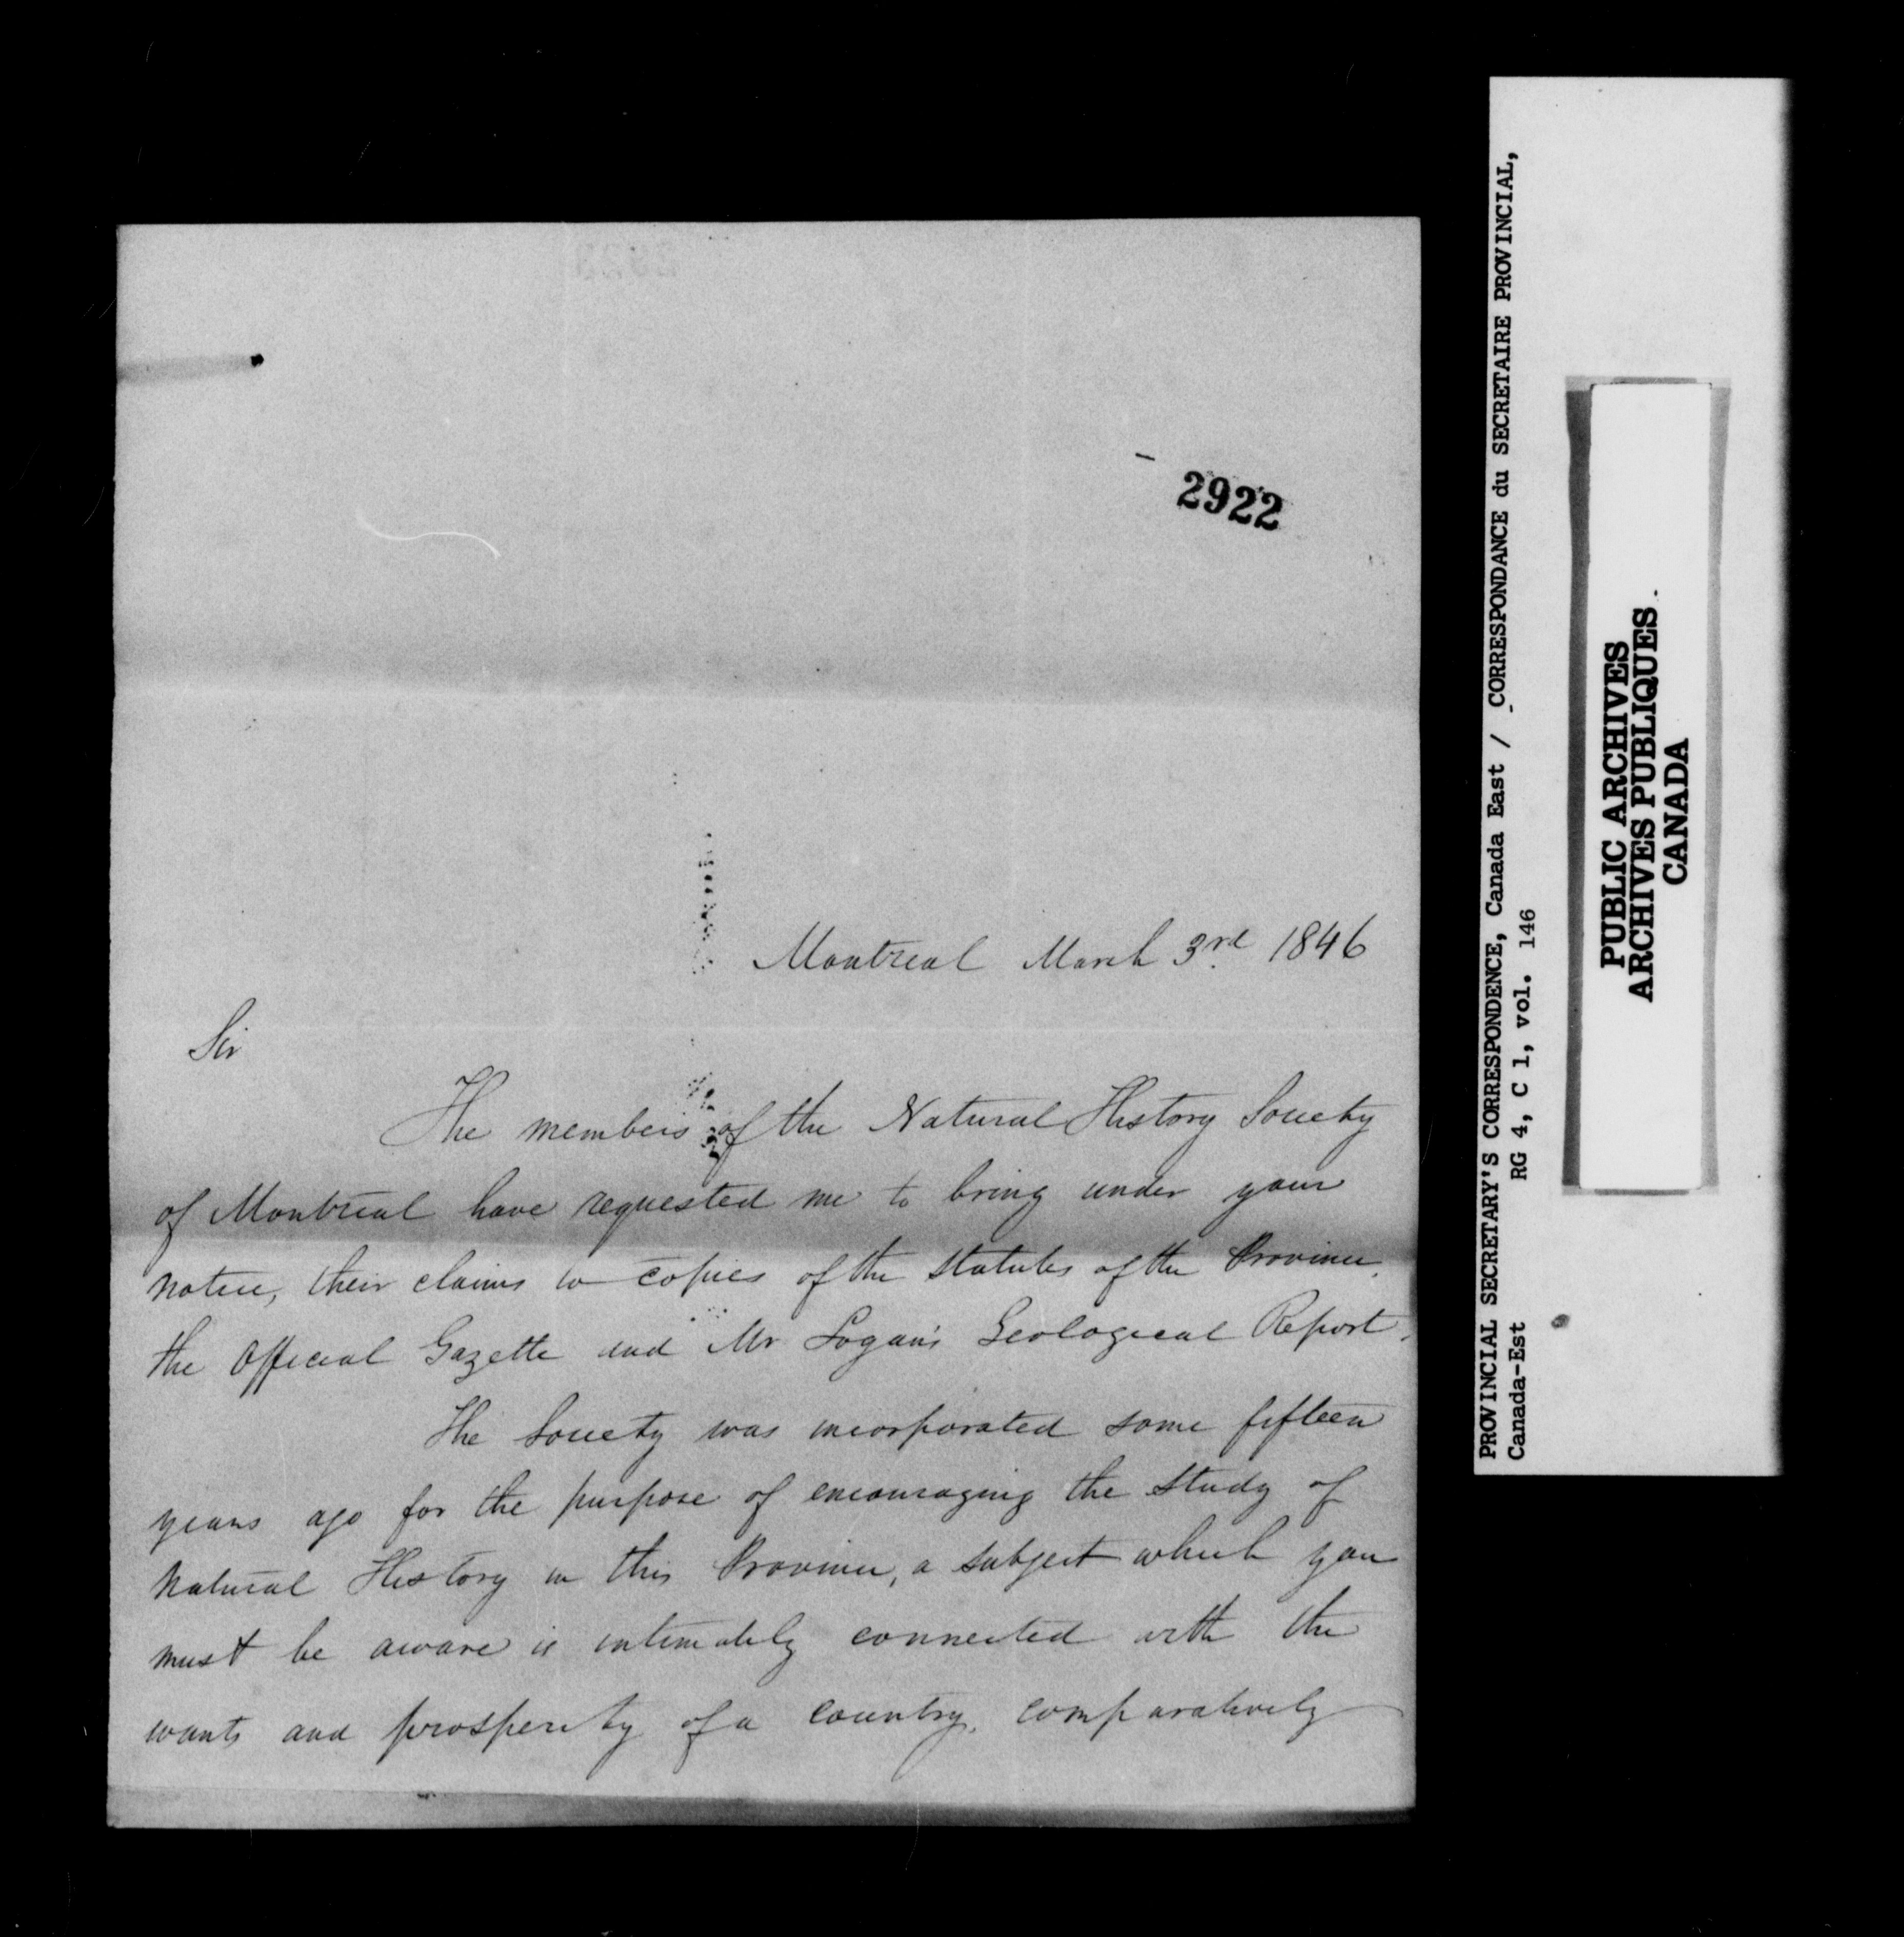 2922
Montreal March 3rd 1846
Sir
The members of the Natural History Society
of Montreal have requested me to bring under your
notice, their claims to copies of the Statutes of the Province,
the Official Gazette and Mr Logan's Geological Report.
The Society was incorporated some fifteen
years ago for the purpose of encouraging the Study of
Natural History in this Province, a subject which you
must be aware is intimately connected with the
wants and prosperity of a country, comparatively
PROVINCIAL SECRETARY'S CORRESPONDENCE, Canada East / CORRESPONDANCE du SECRETAIRE PROVINCIAL,
Canada-Est RG 4, C 1, vol. 146
PUBLIC ARCHIVES
ARCHIVES PUBLIQUES
CANADA